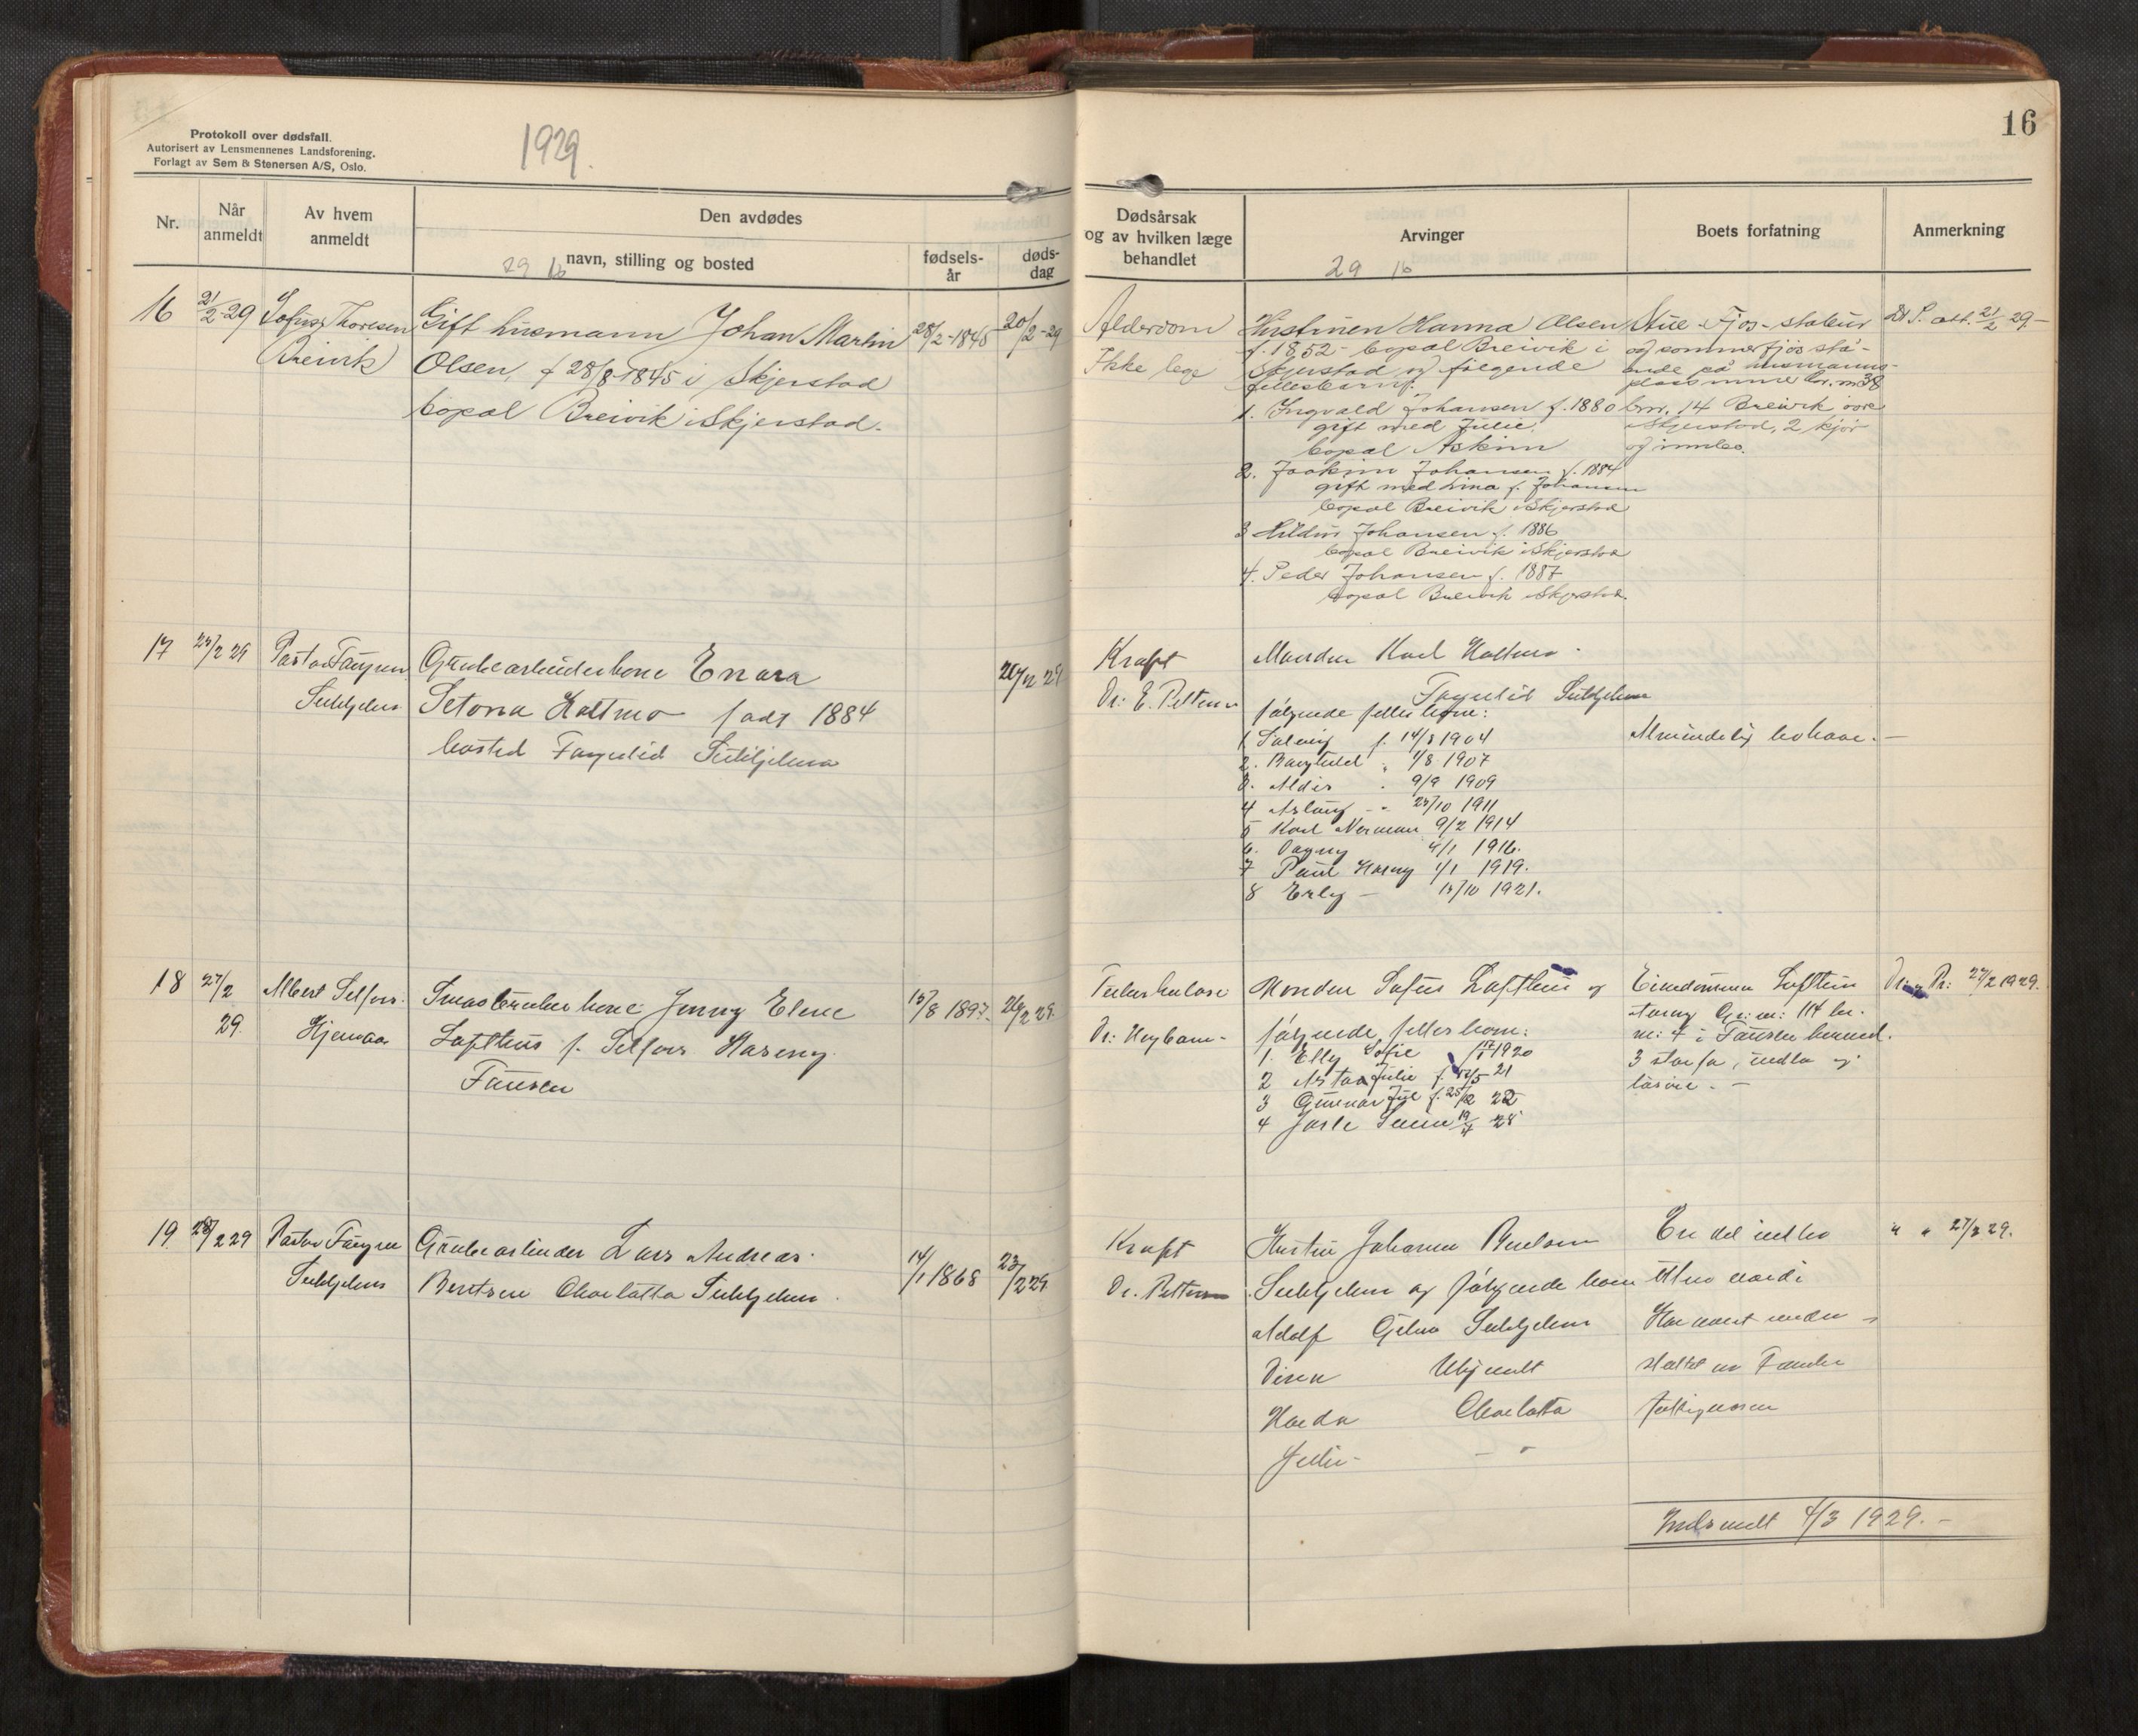 Protokoll over dødsfall.
Autorisert av Lensmennenes Landsforening.
Forlagt av Sem & Stenersen A/S, Oslo.
1929.
16
Nr.
Når anmeldt
Av hvem anmeldt
Den avdødes
navn, stilling og bosted
fødsels-år
døds-dag
Dødsårsak og av hvilken læge behandlet
Arvinger
Boets forfatning
Anmerkning
29 16
29 16
16
21/2-29
Sofus Thoresen
Breivik
Gift husmann Johan Martin
Olsen, f 28/8-1845 i Skjerstad
bopæl Breivik i Skjerstad.
28/2-1845
20/2-29
Alderdom
Ikke lege
Hustruen Hanna Olsen
f. 1852 - bopæl Breivik i
Skjerstad og følgende
fellesbarn:
1. Ingvald Johansen f. 1880
gift med Julie.
bopæl Askim
2. Joakim Johansen f. 1884
gift med Lina f. Johansen
bopæl Breivik i Skjerstad
3 Hildur Johansen f. 1886
bopæl Breivik i Skjerstad
4. Peder Johansen f. 1887
bopæl Breivik i Skjerstad.
Stue - Fjøs - stabur
og sommerfjøs stå-
ende på husmanns-
plass
bnr. 14 Breivik øvre
i Skjerstad, 2 kjør
og innbo.
att. 21/2 29.-
17
Pastor Faugren
Sulitjelma
Grubearbeiderkone Enara
Setona Holtmo født 1884
bosted Fagerlid Sulitjelma
Kreft
Dr: E. Pettersen
Manden Karl Holtmo.
Fagerlid Sulitjelma
følgende felles barn:
1 Solveig f. 14/8 1904
2. Ragnhild " 1/8 1907
3. Aldis " 9/9 1909
4 Aslaug - " 25/10 1911
5 Karl Norman 9/2 1914
6. Dagny 4/1 1916.
7 Paul Harry 1/1 1919.
8 Erly - 13/10 1921.
Almindelig bohave. -
18
27/2
29.
Albert Selfors.
Hjemaas
Småbrukerkone Jenny Elene
Lofthus f. Selfors Haseng.
Fausen
15/8 1897.
26/2 29.
Tuberkulose
Manden Sofus Lofthus og
følgende felles barn:
1. Elly Sofie f 17/1 1920
2 Asta Julie f. 21
3 Gunnar f. 25/12 22
4 19/4 28
Eiendommen Lofthus
114 br.
nr: 4 i Fausen herred.
3 storfe, indbo og
løsøre. -
27/2 1929.
19.
29
Pastor Faugren
Sulitjelma
Grubearbeider Lars Andreas
Berntsen Charlotta Sulitjelma.
14/1 1868
23/2 29
Kreft
Dr. Pettersen
Hustru Johanna Berntsen
Sulitjelma og følgende barn
Adolf Sulitjelma
Charlotta
- "
En del indbo
uten værdi
Har været under-
støttet av Fauske
fattigvesen
" " 27/2 29.
Indsendt 4/3 1929. -